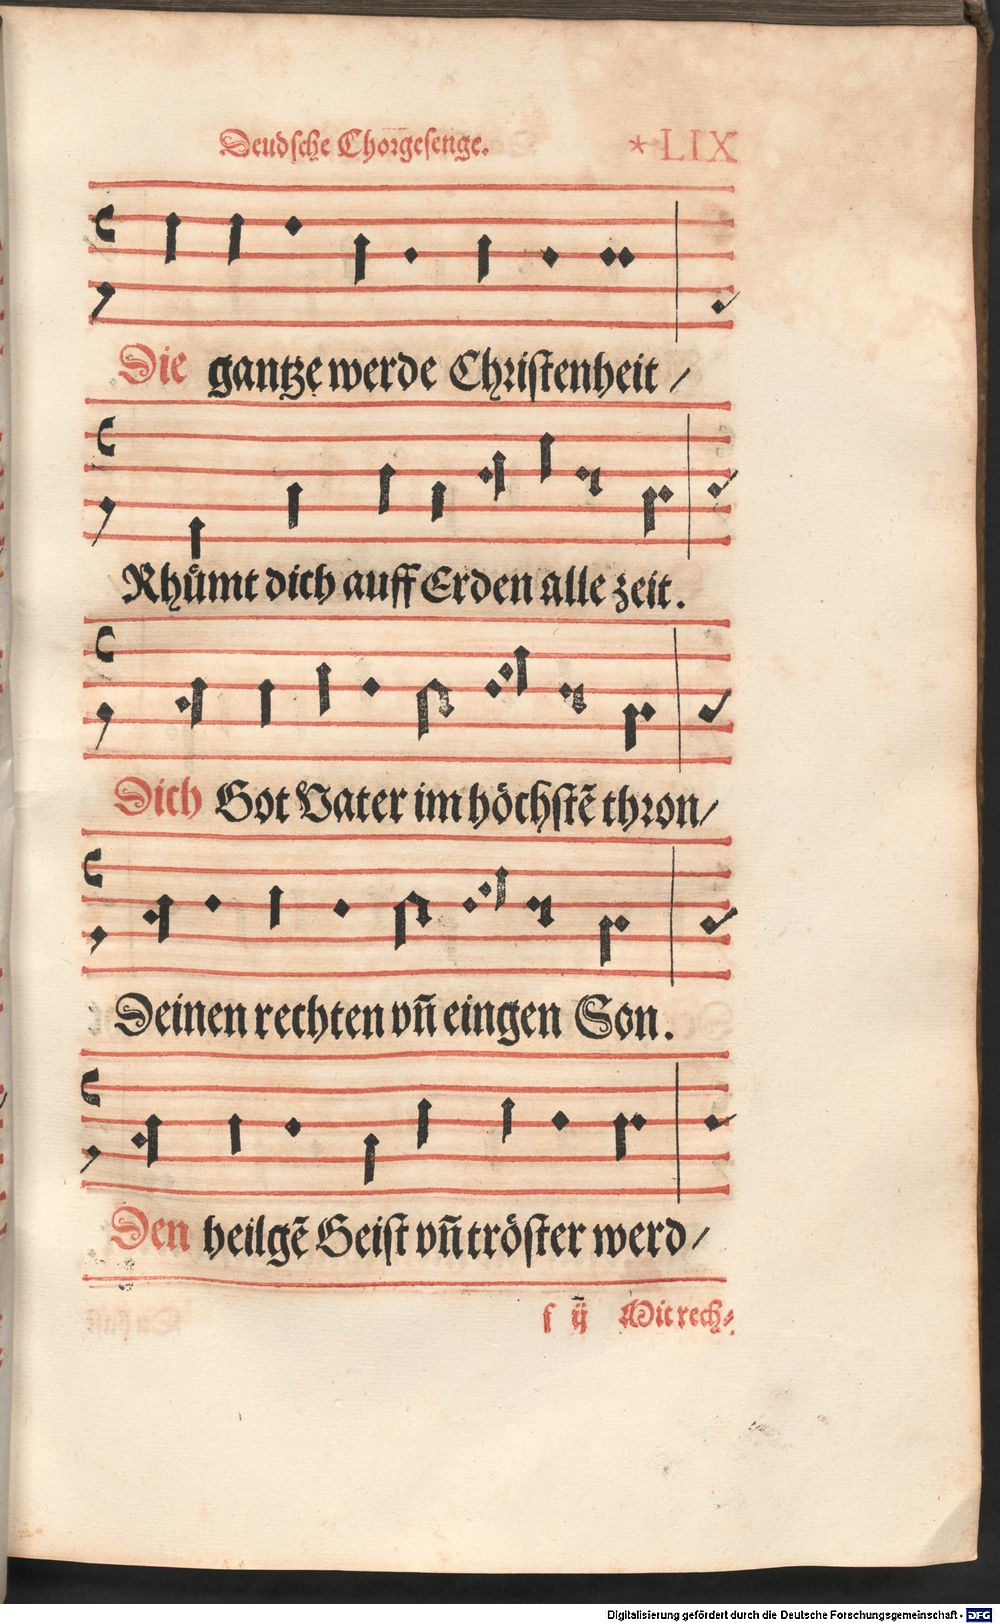 Deudſche Chorgeſenge. * LIX
Die gantze werde Chriſtenheit /
Rhuͤmt dich auff Erden alle zeit.
Dich Got Vater im hoͤchſtẽ thron /
Deinen rechten vñ eingen Son.
Den heilgẽ Geiſt vñ troͤſter werd /
f ij Mit rech⸗
Digitalisierung gefördert durch die Deutsche Forschungsgemeinschaft - DFG